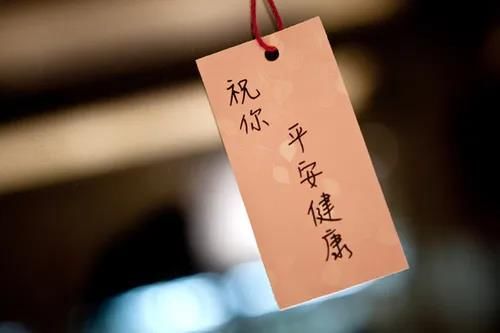 祝你
平安健康